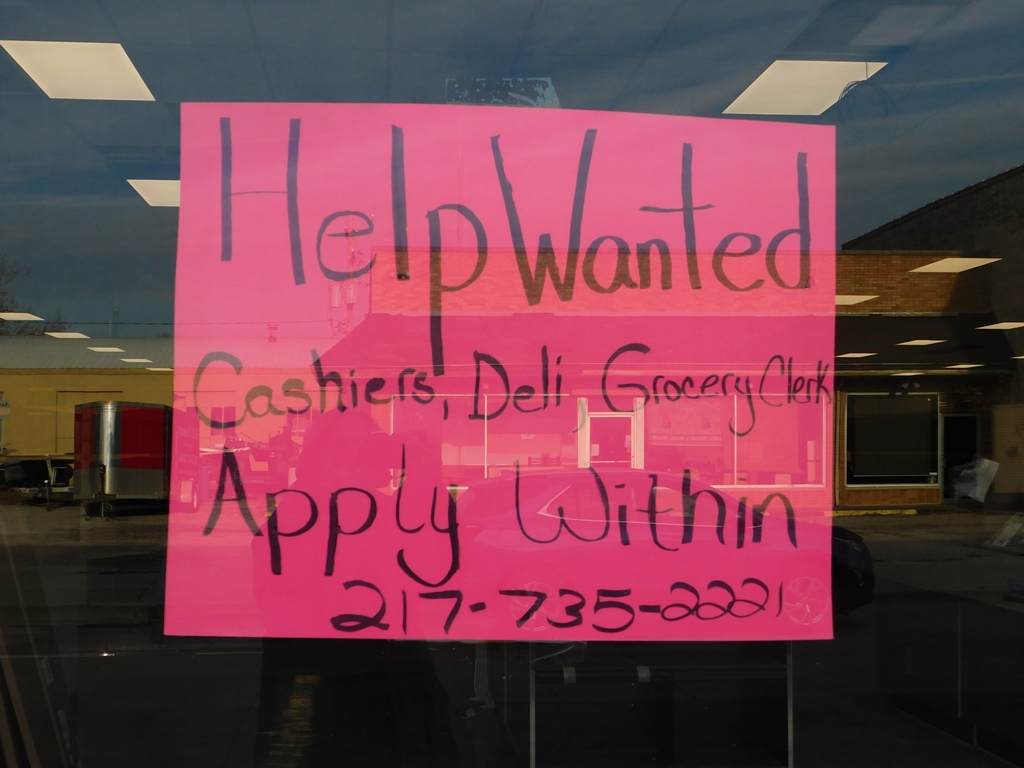 Help Wanted
Cashiers, Deli, Grocery Clerk
Apply Within
217-735-2221